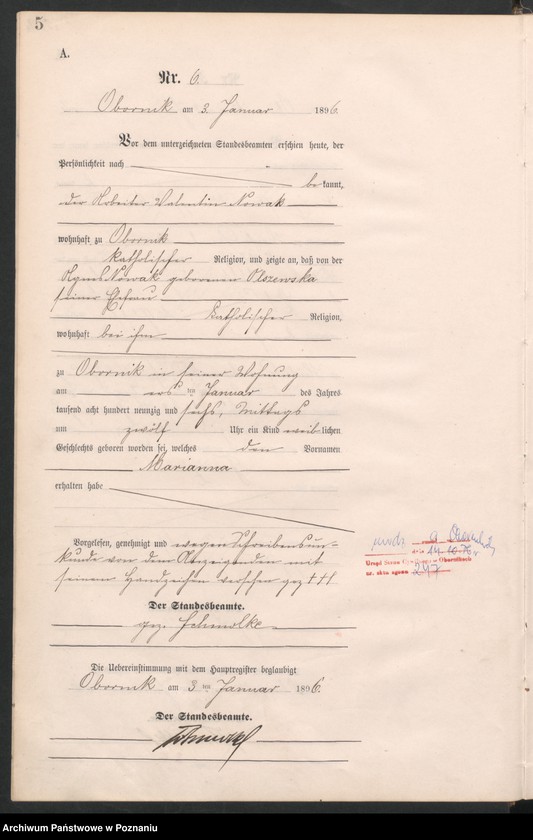 5
A.
Nr. 6.
Obornik am 3. Januar 1896.
Vor dem unterzeichneten Standesbeamten erschien heute, der
Persönlichkeit nach
bekannt,
der Arbeiter Valentin Nowak
wohnhaft zu Obornik
katholischer Religion, und zeigte an, daß von der
Agnes Nowak geborenen Olszewska
seiner Ehefrau
katholischer Religion,
wohnhaft bei ihm
zu Obornik in seiner Wohnung
am ersten Januar des Jahres
tausend acht hundert neunzig und sechs, Mittags
um zwölf Uhr ein Kind weiblichen
Geschlechts geboren worden sei, welches den Vornamen
Marianna
erhalten habe
Vorgelesen, genehmigt und wegen Schreibensun-
kunde von dem Anzeigenden mit
seinem Handzeichen versehen gez +++
Der Standesbeamte.
gez. Schmolke
Die Uebereinstimmung mit dem Hauptregister beglaubigt
Obornik am 3ten Januar 1896.
Der Standesbeamte.
Schmolke
dnia 14.10.76
Urząd Stanu
nr. aktu zgonu 247
Archiwum Państwowe w Poznaniu